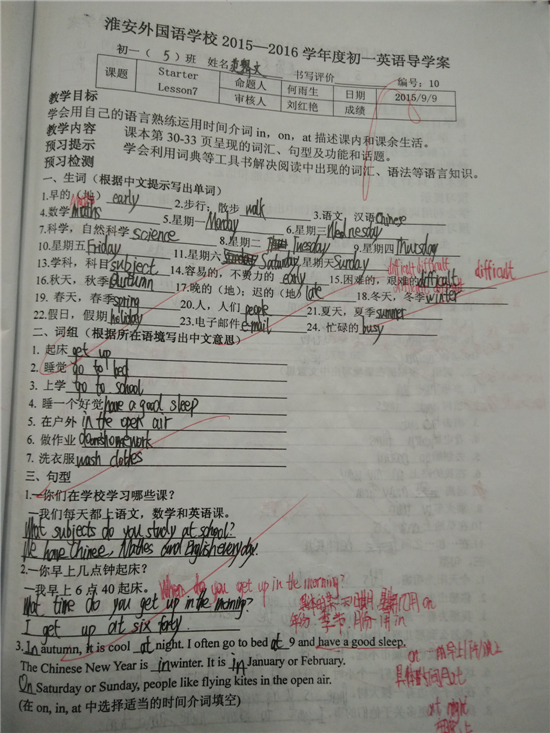 淮安外国语学校 2015—2016 学年度初一英语导学案
初一（ 5 ）班 姓名 书写评价 编号：10
课题 Starter Lesson7 命题人 何雨生 日期 2015/9/9
审核人 刘红艳 成绩
教学目标
学会用自己的语言熟练运用时间介词 in，on，at 描述课内和课余生活。
教学内容 课本第 30-33 页呈现的词汇、句型及功能和话题。
预习提示 学会利用词典等工具书解决阅读中出现的词汇、语法等语言知识。
预习检测
一、生词（根据中文提示写出单词）
1.早的（地） early 2.步行；散步 walk 3.语文，汉语 Chinese
4.数学 maths 5.星期一 Monday 6.星期三 Wednesday
7.科学，自然科学 science 8.星期二 Tuesday 9.星期四 Thursday
10.星期五 Friday 11.星期六 Saturday 星期天 Sunday difficult difficult
13.学科，科目 subject 14.容易的，不费力的 early 15.困难的，艰难的 difficult difficult
16.秋天，秋季 Autumn 17.晚的（地）；迟的（地） late 18.冬天，冬季 winter
19. 春天，春季 spring 20.人，人们 people 21.夏天，夏季 summer
22.假日，假期 holiday 23.电子邮件 e-mail 24. 忙碌的 busy
二、词组（根据所在语境写出中文意思）
1. 起床 get up
2. 睡觉 go to bed
3. 上学 go to school
4. 睡一个好觉 have a good sleep
5. 在户外 in the open air
6. 做作业 homework
7. 洗衣服 wash clothes
三、句型
1.—你们在学校学习哪些课？
—我们每天都上语文，数学和英语课。
What subjects do you study at school?
We have Chinese, Mathes and English everyday.
2.—你早上几点钟起床？
—我早上 6 点 40 起床。 When do you get up in the morning?
What time do you get up in the morning?
I get up at six forty.
年份，季节，月份用 in
3. In autumn, it is cool at night. I often go to bed at 9 and have a good sleep.
The Chinese New Year is in winter. It is in January or February.
On Saturday or Sunday, people like flying kites in the open air.
具体时间用 at
(在 on, in, at 中选择适当的时间介词填空)
at night